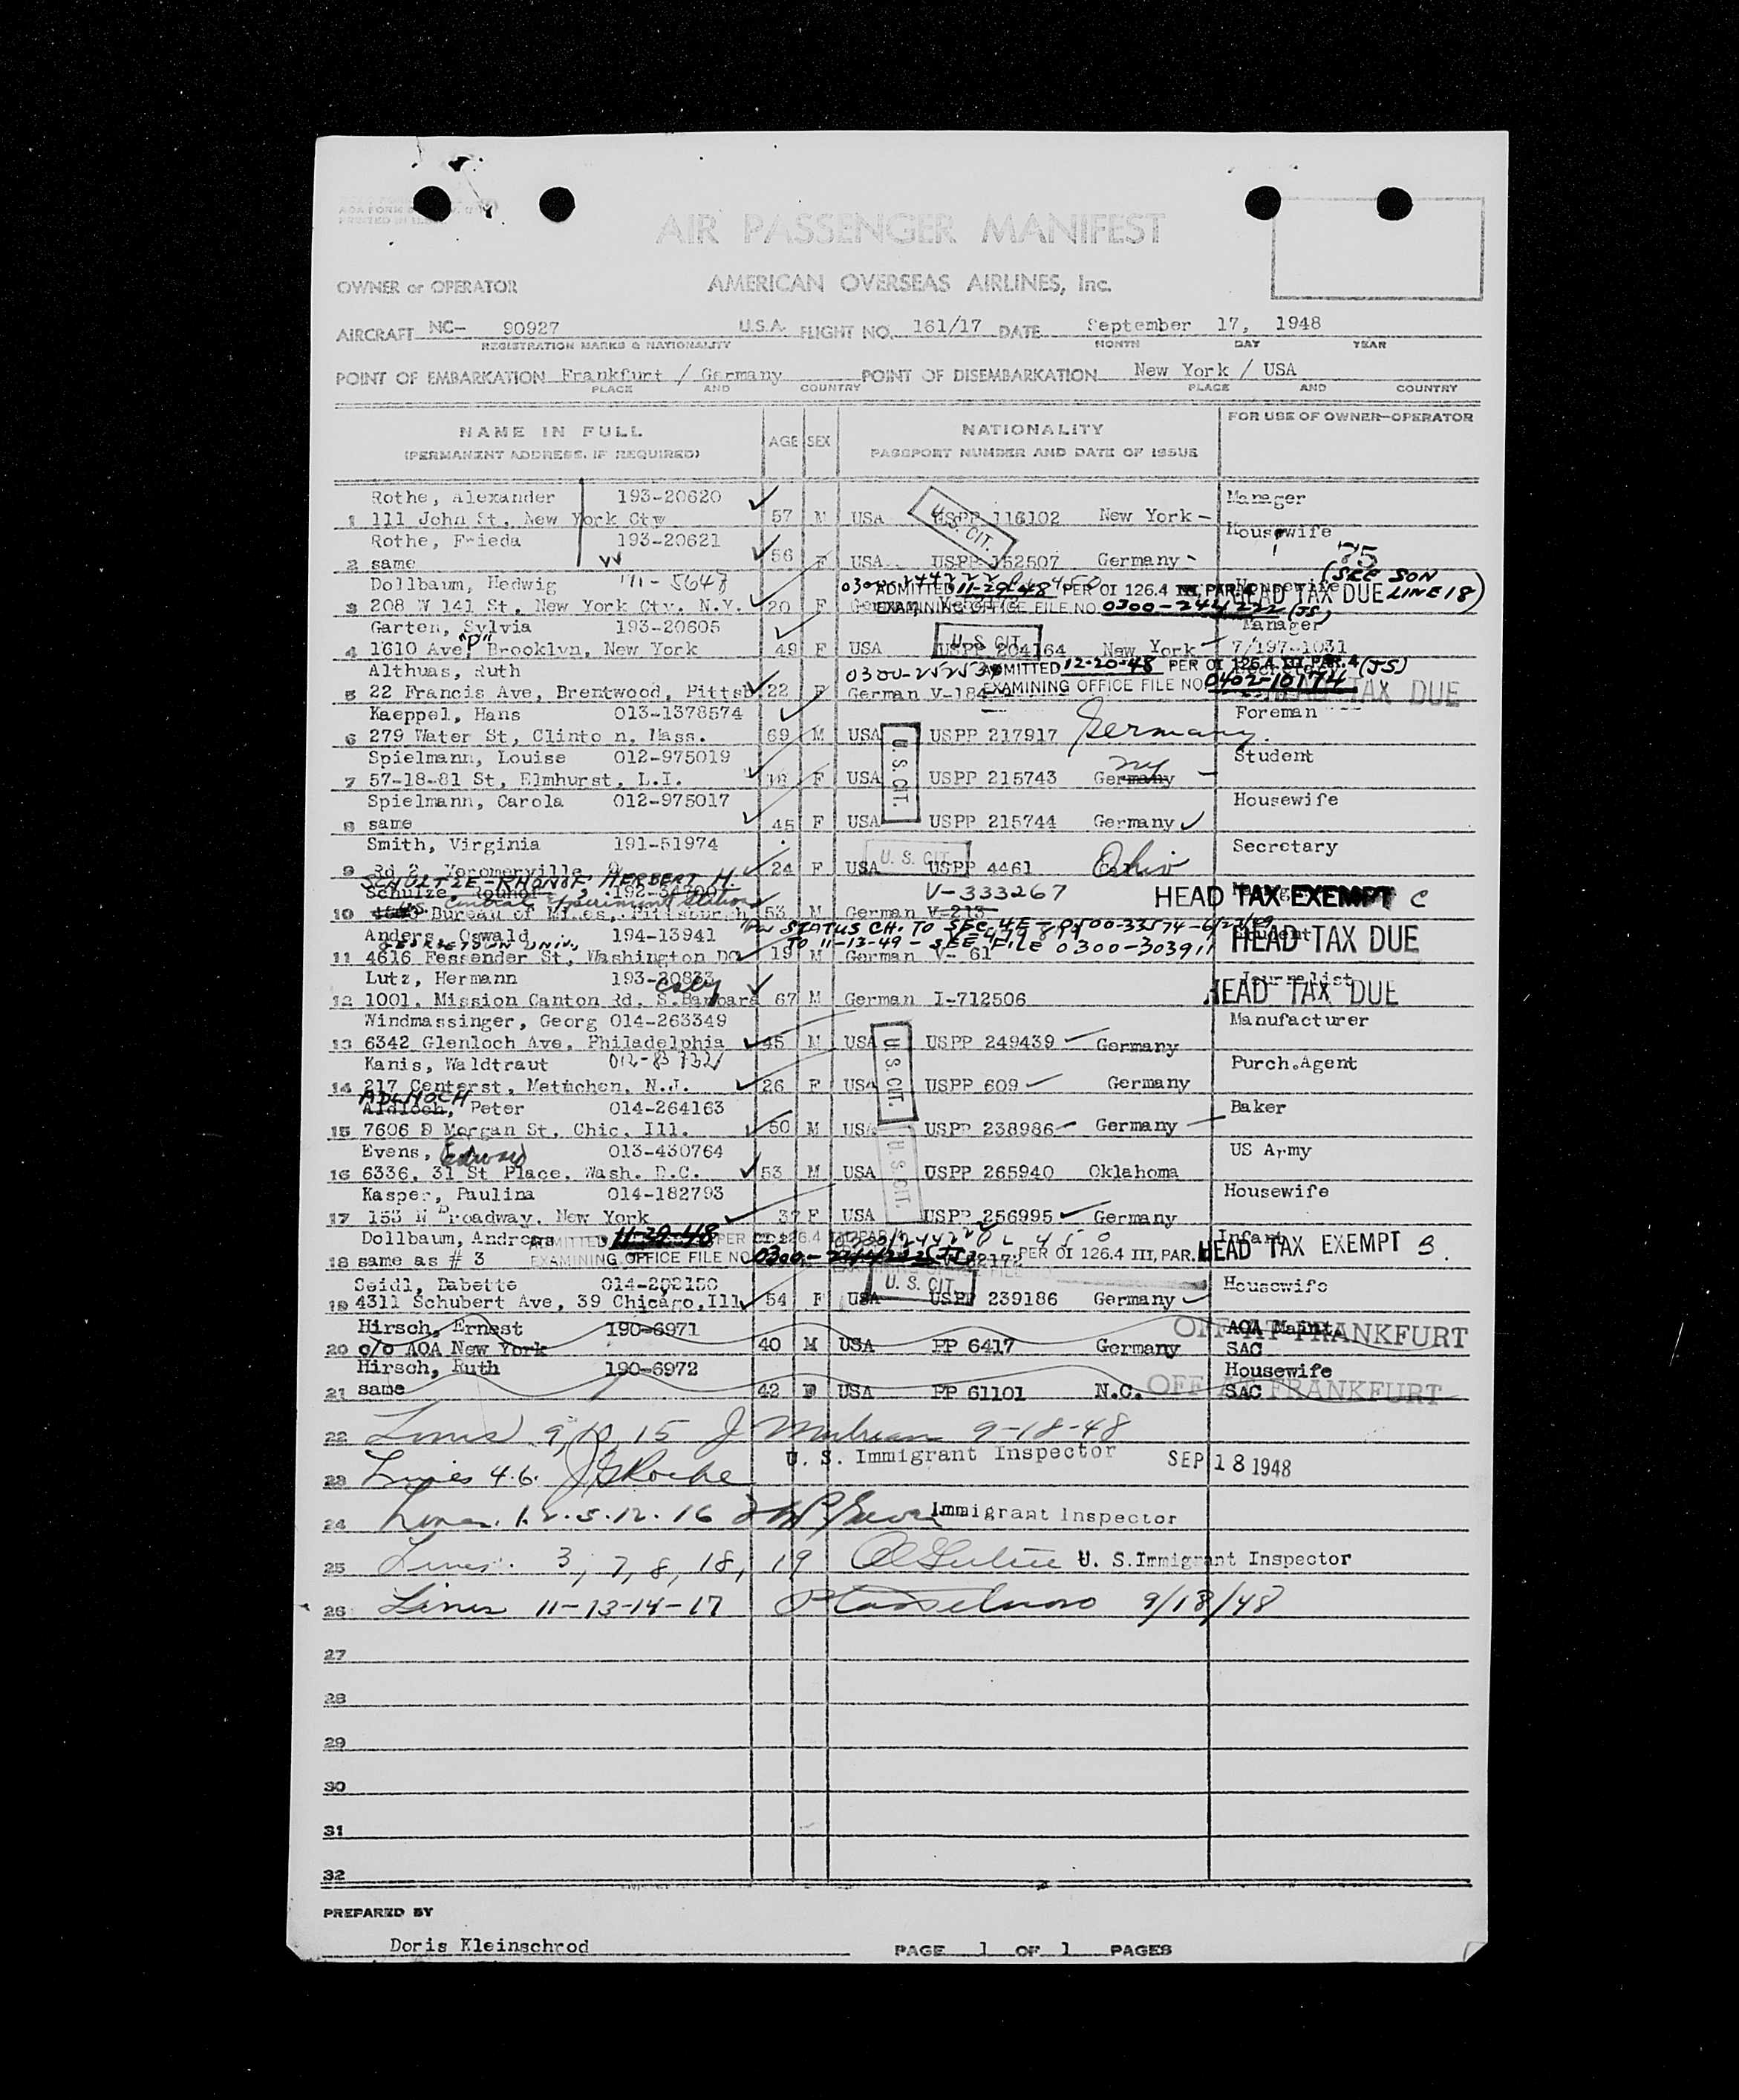 AIR PASSENGER MANIFEST
OWNER or OPERATOR AMERICAN OVERSEAS AIRLINES, Inc.
AIRCRAFT NC- 90927 U.S.A. FLIGHT NO. 161/17 DATE September 17, 1948
REGISTRATION MARKS & NATIONALITY MONTH DAY YEAR
POINT OF EMBARKATION Frankfurt / Germany POINT OF DISEMBARKATION New York / USA
PLACE AND COUNTRY PLACE AND COUNTRY
NAME IN FULL AGE SEX NATIONALITY FOR USE OF OWNER-OPERATOR
(PERMANENT ADDRESS, IF REQUIRED) PASSPORT NUMBER AND DATE OF ISSUE
Rothe, Alexander 193-20620 Manager
1 111 John St, New York Cty 57 M USA USPP 116102 New York - U.S. CIT.
Rothe, Frieda 193-20621 Housewife
2 same 56 F USA USPP 152507 Germany - 75
Dollbaum, Hedwig 111-5647 ADMITTED 11-29-48 PER OI 126.4 III, PAR. HEAD TAX DUE (SEE SON LINE 18)
3 208 W 141 St, New York Cty. N.Y. 20 F German EXAMINING OFFICE FILE NO. 0300-244222 (JS)
Garten, Sylvia 193-20605 Manager
4 1610 Ave, "P" Brooklyn, New York 49 F USA U.S. CIT. USPP 204164 New York 7/197-1031
Althuas, Ruth ADMITTED 12-20-48 PER OI 126.4 III PAR. 4 (JS)
5 22 Francis Ave, Brentwood, Pittsb 22 F German EXAMINING OFFICE FILE NO. 0402-10174 TAX DUE
Kaeppel, Hans 013-1378574 Foreman
6 279 Water St, Clinto n, Mass. 69 M USA USPP 217917 Germany.
Spielmann, Louise 012-975019 Student
7 57-18-81 St, Elmhurst, L.I. 18 F USA U.S. CIT. USPP 215743 Germany NY -
Spielmann, Carola 012-975017 Housewife
8 same 45 F USA USPP 215744 Germany
Smith, Virginia 191-51974 Secretary
9 Rd 2, 24 F USA U. S. CIT. USPP 4461 Ohio
SCHULTZE-RHONOF, HERBERT H. V-333267 HEAD TAX EXEMPT C
Central Experiment Station
10 Bureau of Mines, Pittsburgh 53 M German V-213
Anders, Oswald 194-13941 STATUS CH. TO SEC. 4E Student
GEORGETOWN UNIV. TO 11-13-49 - SEE FILE 0300-303911 HEAD TAX DUE
11 4616 Fessender St, Washington DC 19 M German V- 61
Lutz, Hermann 193-20833 Journalist
12 1001, Mission Canton Rd, S.Barbara 67 M German I-712506 HEAD TAX DUE
Windmassinger, Georg 014-263349 Manufacturer
13 6342 Glenloch Ave, Philadelphia 45 M USA USPP 249439 Germany
Kanis, Waldtraut Purch.Agent
14 217 Centerst, Metuchen, N.J. 26 F USA U.S. CIT. USPP 609 Germany
ADLHOCH
Aldloch, Peter 014-264163 Baker
15 7606 S Morgan St, Chic, Ill. 50 M USA USPP 238986 Germany
Evens, Edward 013-430764 US Army
16 6336, 31 St Place, Wash. D.C. 53 M USA U.S. CIT. USPP 265940 Oklahoma
Kasper, Paulina 014-182793 Housewife
17 153 N Broadway, New York 37 F USA USPP 256995 Germany
Dollbaum, Andreas ADMITTED 11-29-48 PER OI 126.4 Infant
18 same as # 3 EXAMINING OFFICE FILE NO. 0300-244222 PER OI 126.4 III, PAR. HEAD TAX EXEMPT 3.
Seidl, Babette 014-252150 Housewife
19 4311 Schubert Ave, 39 Chicago,Ill 54 F USA U.S. CIT. USPP 239186 Germany
Hirsch, Ernest 190-6971 AOA Maint.
20 c/o AOA New York 40 M USA PP 6417 Germany SAC OFF AT FRANKFURT
Hirsch, Ruth 190-6972 Housewife
21 same 42 F USA PP 61101 N.C. SAC OFF AT FRANKFURT
22 Lines 9, 10, 15 9-18-48
U. S. Immigrant Inspector SEP 18 1948
23 Lines 4.6.
24 Lines. 1.2.5.12.16 Immigrant Inspector
25 Lines. 3, 7, 8, 18, 19 U. S. Immigrant Inspector
26 Lines 11-13-14-17 9/18/48
27
28
29
30
31
32
PREPARED BY
Doris Kleinschrod PAGE 1 OF 1 PAGES